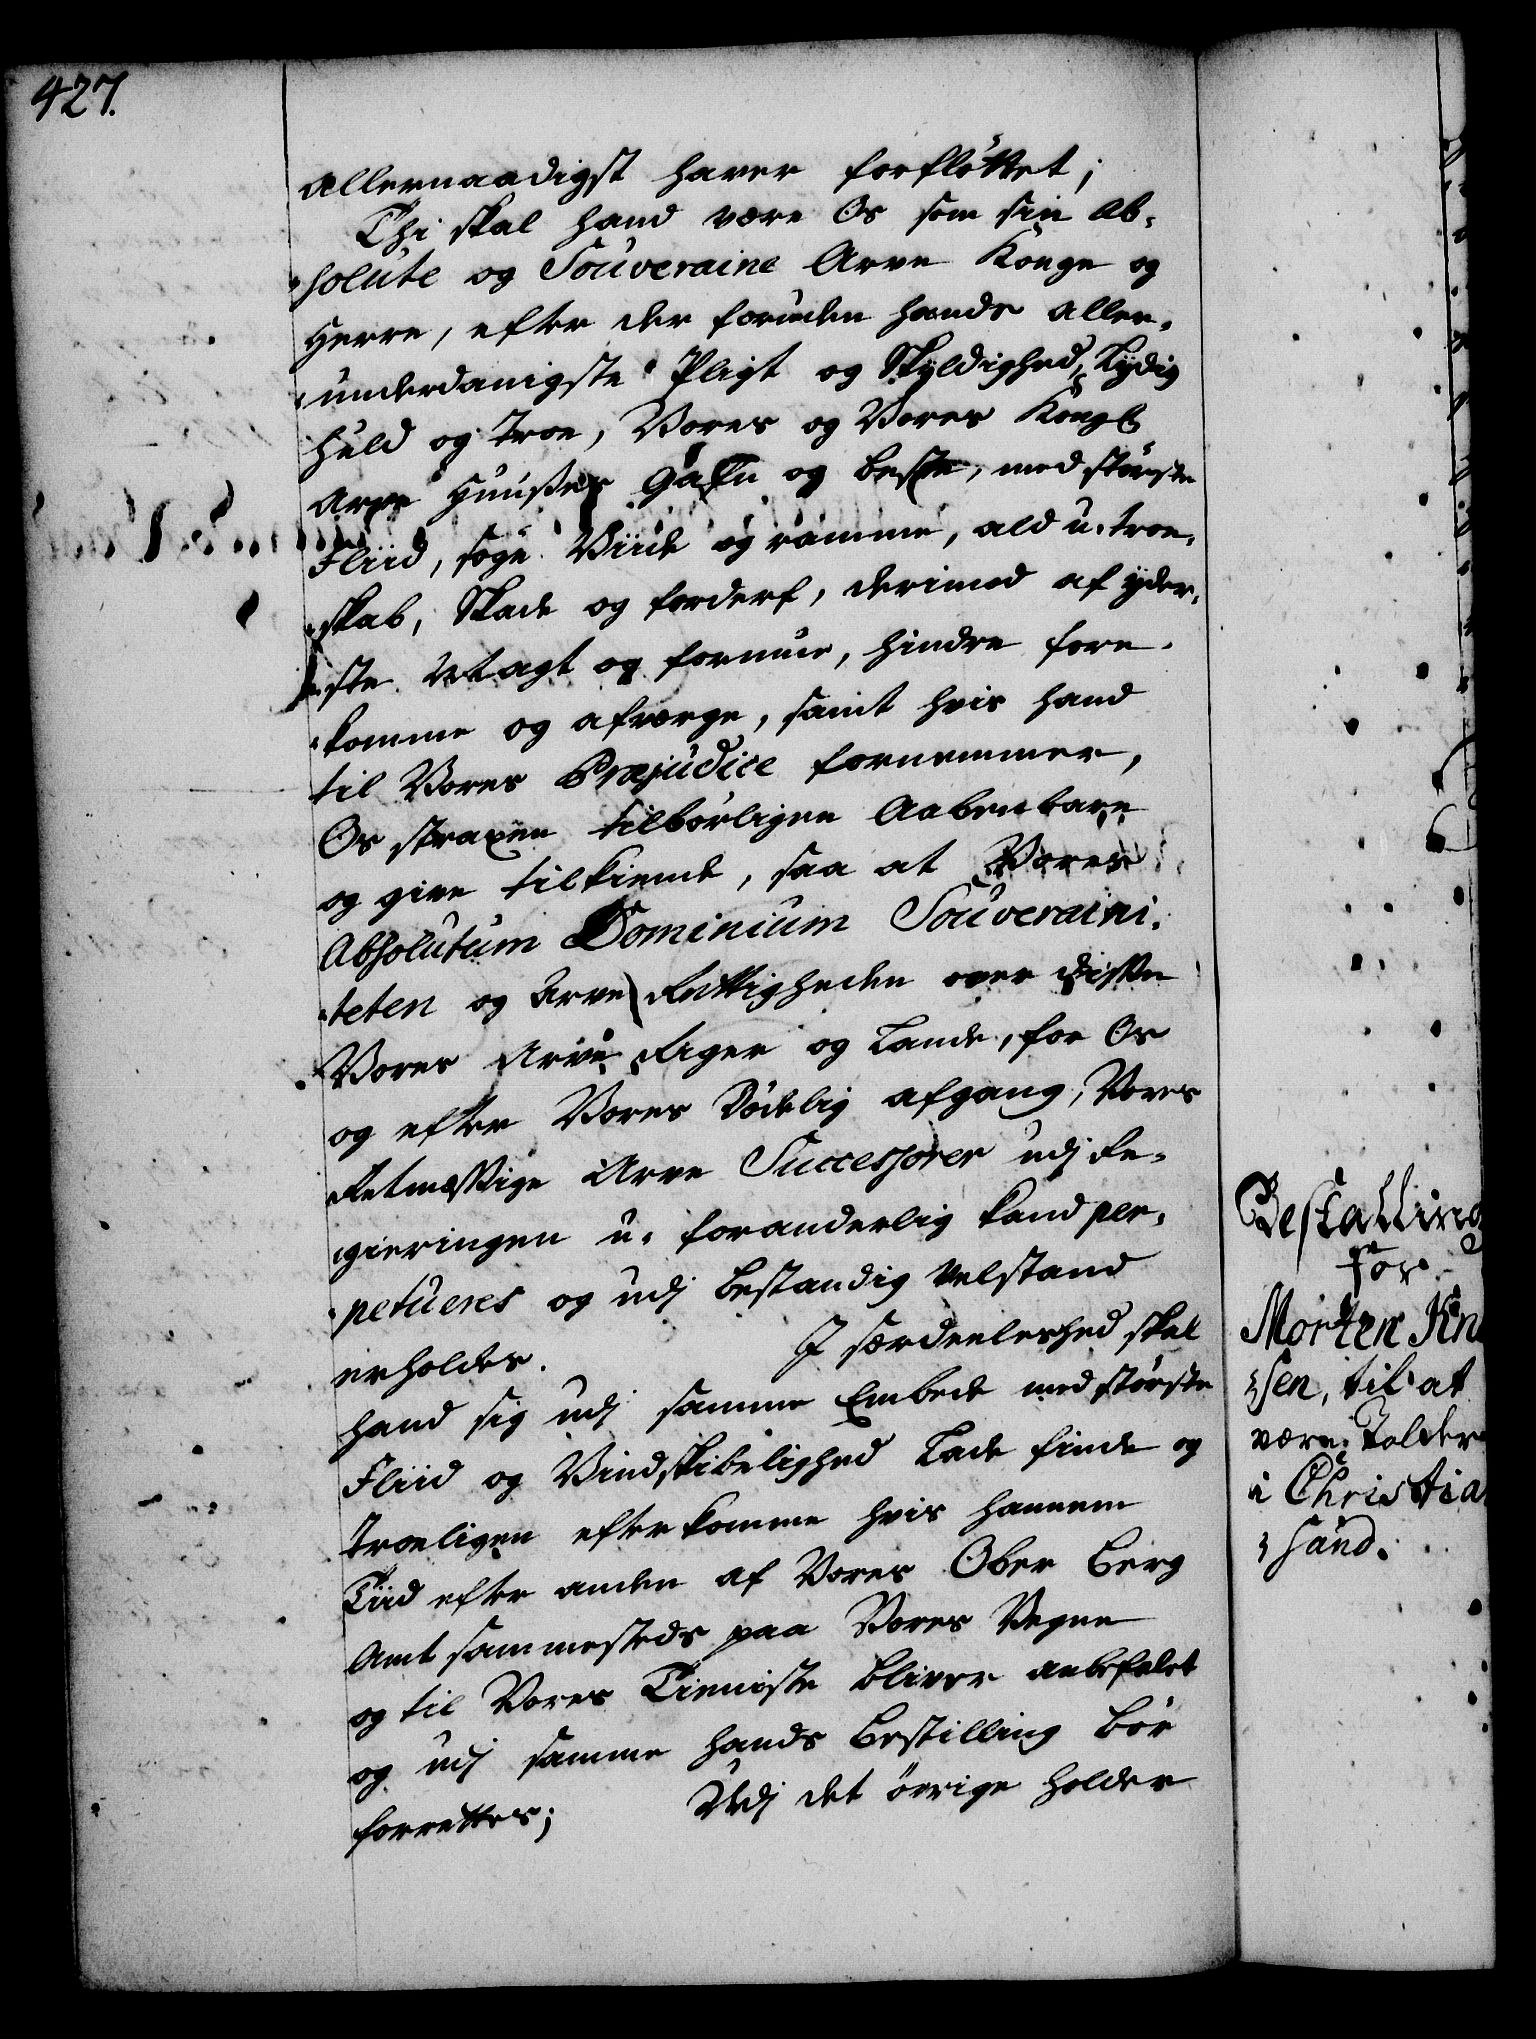 427.
allernaadigst haver forfløttet;
Thi skal hand være Os som sin Ab-
solute og Souveraine Arve Konge og
Herre, efter der foruden hands aller-
underdanigste Pligt og Skyldighed, Lydig
huld og troe, Vores og Vores Kongl
Arve Huusses gafn og beste, med største
Fliid, søge Viide og ramme, ald u-troe-
skab, Skade og forderf, derimod af yder-
ste Magt og formue, hindre fore-
komme og afværge, samt hvis hand
til Vores Præjudice fornemmer,
Os straxen tilbørligen Aabenbare
og give tilkiende, saa at Vores
Absolutum Dominium Souveraini-
teten og Arve Rettigheden over disse
Vores Arve Riger og Lande, for Os
og efter Vores Dødelig afgang, Vores
Retmæssige Arve Successorer udj Re-
gieringen u-foranderlig kand per-
petueres og udj bestandig Velstand
erholdes. I særdeeleshed skal
hand sig udj samme Embede med største
Fliid og Vindskibelighed Lade finde og
troeligen efterkomme hvis hannem
Tiid efter anden af Vores Ober Berg
Amt sammesteds paa Vores Vegne
og til Vores Tieniste bliver anbefalet
og udj samme hands bestilling bør
forrettes; Udj det øvrige holder
Bestalling
for
Morten Kn
sen, til at
være Tolder
i Christia
sand.